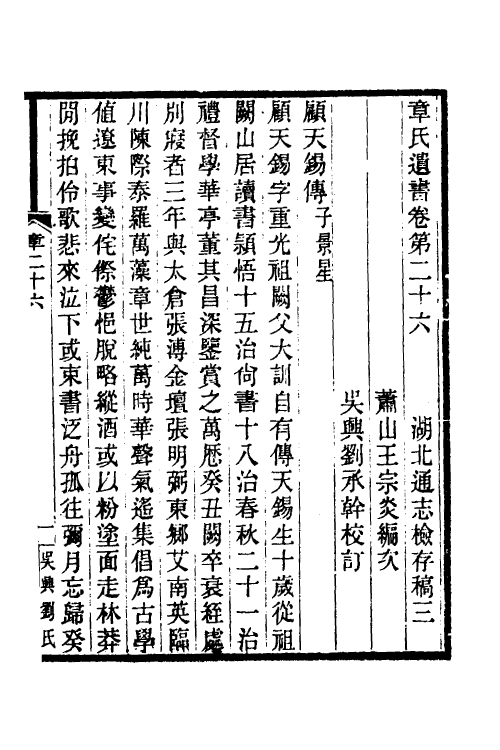 章氏遺書卷第二十六　湖北通志檢存稿三
蕭山王宗炎編次
吳興劉承幹校訂
顧天錫傳子景星
顧天錫字重光祖闕父大訓自有傳天錫生十歲從祖
闕山居讀書頴悟十五治尙書十八治春秋二十一治
禮督學華亭董其昌深鑒賞之萬厯癸丑闕卒衰絰處
別寢者三年與太倉張溥金壇張明弼東鄉艾南英臨
川陳際泰羅萬藻章世純萬時華聲氣遙集倡爲古學
値遼東事變侘傺鬱悒脫略縱酒或以粉塗面走林莽
閒挽拍伶歌悲來泣下或束書泛舟孤往彌月忘歸癸
章二十六
一
吳興劉氏